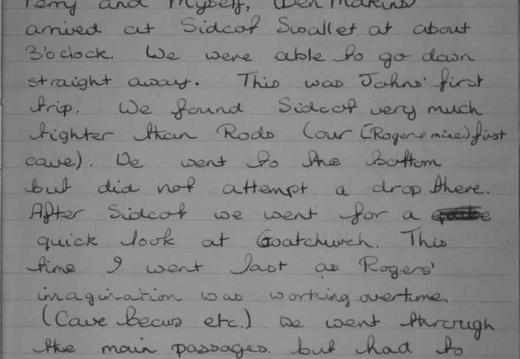 Terry and Myself, Ben Makins
arrived at Sidcot Swallet at about
3'oclock. We were able to go down
straight away. This was Johns' first
trip. We found Sidcot very much
tighter than Rods (our (Rogers mine) first
cave). We went to the bottom
but did not attempt a drop there.
After Sidcot we went for a
quick look at Goatchurch. This
time I went last as Rogers'
imagination was working overtime.
(Cave becus etc.) We went through
the main passages. but had to